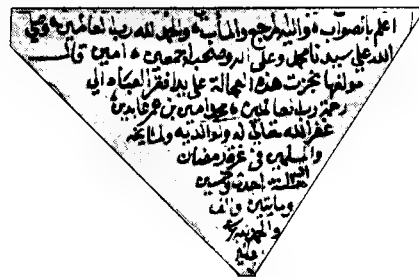 اعلم بالصواب واليه المرجع والمآب والحمد لله رب العالمين وصلى
الله على سيدنا محمد وعلى اله وصحبه اجمعين امين قال
مؤلفها نجزت هذه العجالة على يد افقر العباد الى
رحمة رب العالمين محمد امين بن عمر عابدين
غفر الله تعالى له ولوالديه ولمشايخه
والمسلمين في غرة رمضان
سنة احدى وخمسين
ومايتين والف
والحمد لله